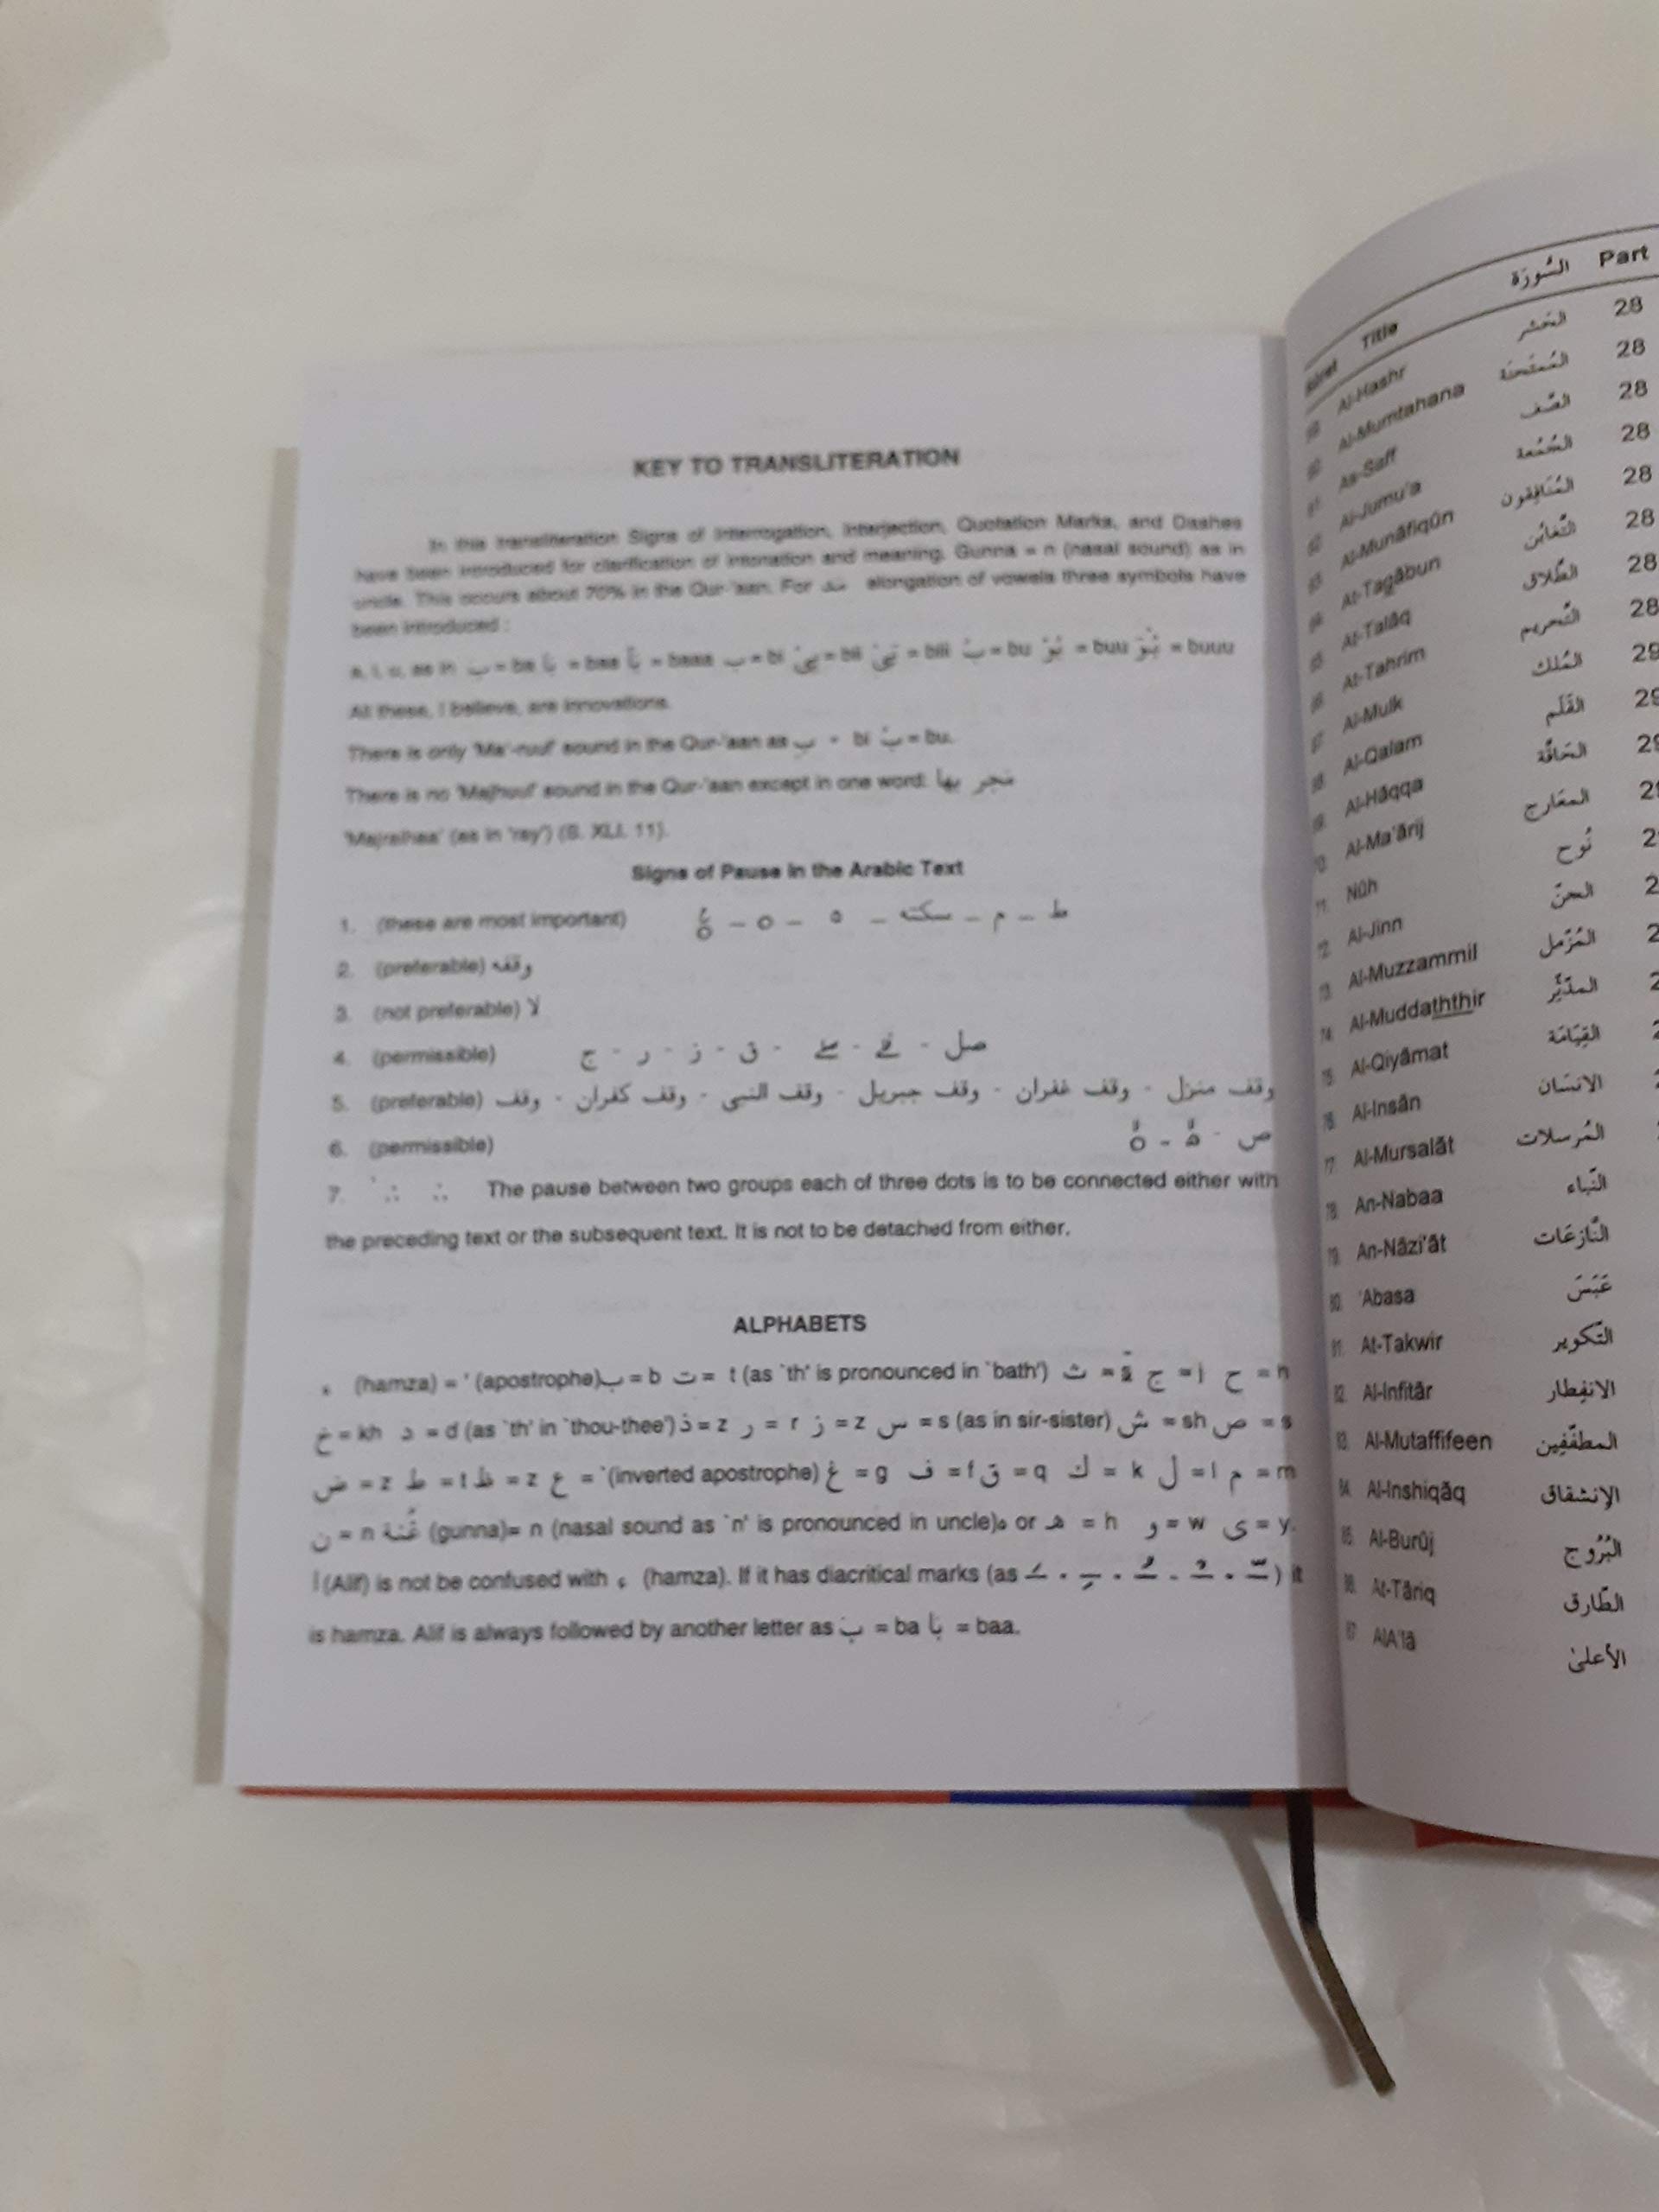 KEY TO TRANSLITERATION
In this transliteration Signs of Interrogation, Interjection, Quotation Marks, and Dashes
have been introduced for clarification of intonation and meaning. Gunna = n (nasal sound) as in
uncle. This occurs about 70% in the Qur-'aan. For مد elongation of vowels three symbols have
been introduced :
a, i, u, as in بَ = ba بَا = baa بَآ = baaa بِ = bi بِىْ = bii بِىٓ = biii بُ = bu بُوْ = buu بُوٓ = buuu
All these, I believe, are innovations.
There is only 'Ma'-ruuf' sound in the Qur-'aan as بِ - bi بُ = bu.
There is no 'Majhuul' sound in the Qur-'aan except in one word:
'Majraihaa' (as in 'ray') (S. XLI. 11).
Signs of Pause in the Arabic Text
1. (these are most important) ط – م – سكته – ه – o –
2. (preferable) وقفه
3. (not preferable) لا
4. (permissible) صل - ق - ز - ر - ج
5. (preferable) وقف منزل - وقف غفران - وقف جبريل - وقف النبى - وقف كفران - وقف
6. (permissible) ص
7. ∴ ∴ The pause between two groups each of three dots is to be connected either with
the preceding text or the subsequent text. It is not to be detached from either.
ALPHABETS
ء (hamza) = ' (apostrophe) ب = b ت = t (as `th' is pronounced in `bath') ث = s̄ ج = j ح = h
خ = kh د = d (as `th' in `thou-thee') ذ = z ر = r ز = z س = s (as in sir-sister) ش = sh ص = s
ض = z ط = t ظ = z ع = `(inverted apostrophe) غ = g ف = f ق = q ك = k ل = l م = m
ن = n غُنة (gunna)= n (nasal sound as `n' is pronounced in uncle) ه or هـ = h و = w ى = y.
ا (Alif) is not be confused with ء (hamza). If it has diacritical marks (as ) it
is hamza. Alif is always followed by another letter as بَ = ba بَا = baa.
Title السُّورَة Part
Al-Hashr الحَشر 28
Al-Mumtahana المُمتَحنَة 28
As-Saff الصَّف 28
Al-Jumu'a الجُمُعة 28
Al-Munāfiqūn المُنَافِقون 28
At-Tagābun التَّغابُن 28
At-Talāq الطَّلاق 28
At-Tahrim التَّحريم 28
Al-Mulk المُلك 29
Al-Qalam القَلَم 29
Al-Hāqqa الحَاقَّة
Al-Ma'ārij المعَارج
Nūh نُوح
Al-Jinn الجنّ
Al-Muzzammil المُزّمل
Al-Muddaththir المدّثّر
Al-Qiyāmat القِيَامَة
Al-Insān الانسَان
Al-Mursalāt المُرسلات
An-Nabaa النّبَاء
An-Nāzi'āt النَّازعَات
80. 'Abasa عَبَسَ
81. At-Takwir التّكوير
82. Al-Infitār الانفِطار
83. Al-Mutaffifeen المطفّفِين
84. Al-Inshiqāq الإنشقاق
85. Al-Burūj البُرُوج
86. At-Tāriq الطّارق
87. AlA'lā الأعلىٰ